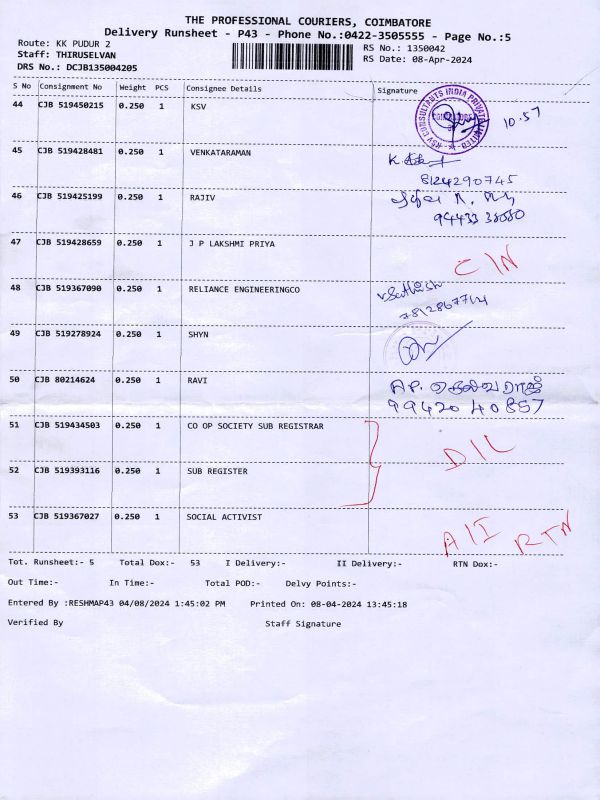 THE PROFESSIONAL COURIERS, COIMBATORE
Delivery Runsheet - P43 - Phone No.:0422-3505555 - Page No.:5
Route: KK PUDUR 2
Staff: THIRUSELVAN
DRS No.: DCJB135004205
RS No.: 1350042
RS Date: 08-Apr-2024
S No Consignment No Weight PCS Consignee Details Signature
44 CJB 519450215 0.250 1 KSV 10.57
45 CJB 519428481 0.250 1 VENKATARAMAN
8124290745
46 CJB 519425199 0.250 1 RAJIV
94433 38080
47 CJB 519428659 0.250 1 J P LAKSHMI PRIYA C/N
48 CJB 519367090 0.250 1 RELIANCE ENGINEERINGCO
49 CJB 519278924 0.250 1 SHYN
50 CJB 80214624 0.250 1 RAVI
99420 40857
51 CJB 519434503 0.250 1 CO OP SOCIETY SUB REGISTRAR
D/L
52 CJB 519393116 0.250 1 SUB REGISTER
53 CJB 519367027 0.250 1 SOCIAL ACTIVIST A/I RTN
Tot. Runsheet:- 5 Total Dox:- 53 I Delivery:- II Delivery:- RTN Dox:-
Out Time:- In Time:- Total POD:- Delvy Points:-
Entered By :RESHMAP43 04/08/2024 1:45:02 PM Printed On: 08-04-2024 13:45:18
Verified By Staff Signature